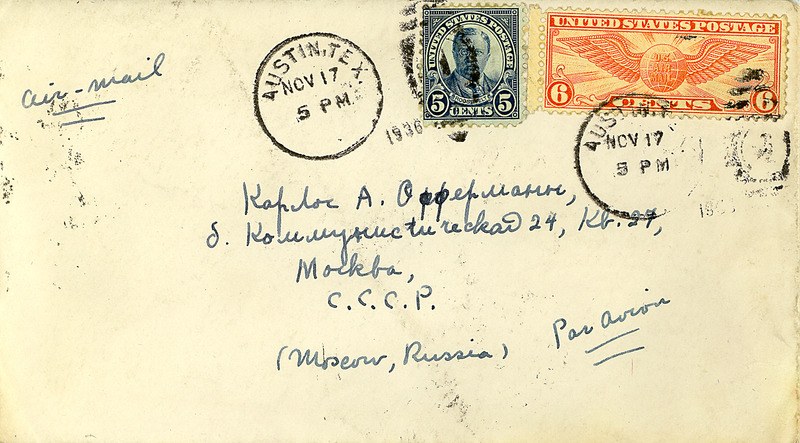 air-mail
AUSTIN, TEX.
NOV 17
5 PM
1936
UNITED STATES POSTAGE
5 CENTS 5
UNITED STATES POSTAGE
U.S.
AIR
MAIL
6 CENTS 6
AUSTIN,
NOV 17
5 PM
Карлос А. Офферманн,
б. Коммунистическая 24, Кв. 27,
Москва,
С.С.С.Р.
(Moscow, Russia)
Par avion